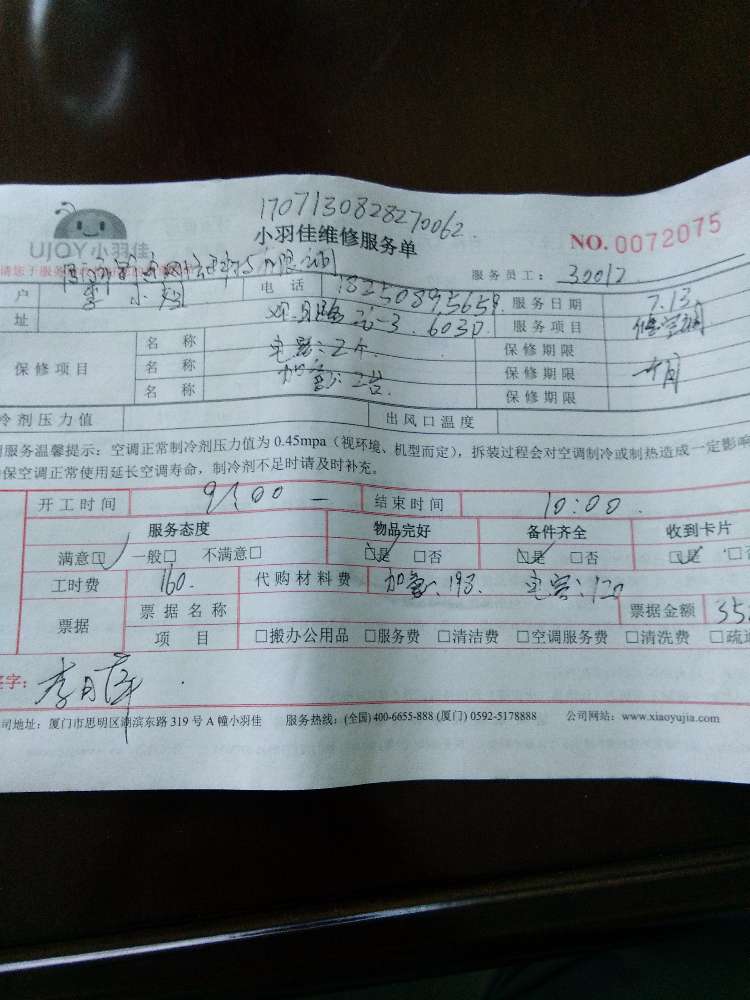 1707130828270062
UJOY小羽佳
小羽佳维修服务单
NO.0072075
服务员工：30012
户 李小 电话 18250895659 服务日期 7.13
址 26-3 603 服务项目 修空调
保修项目 名称 电容：2个 保修期限
名称 加氟：2台 保修期限 一个月
名称 保修期限
冷剂压力值 出风口温度
服务温馨提示：空调正常制冷剂压力值为 0.45mpa（视环境、机型而定），拆装过程会对空调制冷或制热造成一定影响
保空调正常使用延长空调寿命，制冷剂不足时请及时补充。
开工时间 9:00 — 结束时间 10:00
服务态度 物品完好 备件齐全 收到卡片
满意☑ 一般□ 不满意□ ☑是 □否 ☑是 □否 ☑是 □否
工时费 160. 代购材料费 加氟：193. 电容：120
票据 票据名称 票据金额 35
项目 □搬办公用品 □服务费 □清洁费 □空调服务费 □清洗费 □疏
签字：李月萍
司地址：厦门市思明区湖滨东路 319 号 A 幢小羽佳 服务热线：(全国) 400-6655-888 (厦门) 0592-5178888 公司网站：www.xiaoyujia.com